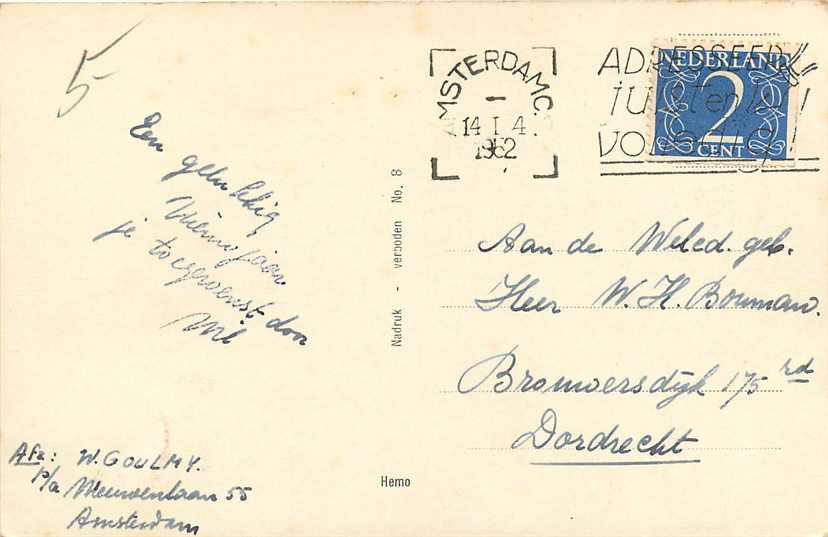 5-
Een gelukkig
Nieuwjaar
je toegewenst door
Wil
Afz: W. GOULMY.
p/a Meeuwenlaan 55
Amsterdam
Nadruk - verboden No. 8
Hemo
AMSTERDAM C.S
14 I 4
1952
ADRESSEER
JUIST en
VOLLEDIG!
NEDERLAND
2
CENT
Aan de Weled. geb.
Heer W. H. Bouman.
Brouwersdijk 175 rd
Dordrecht